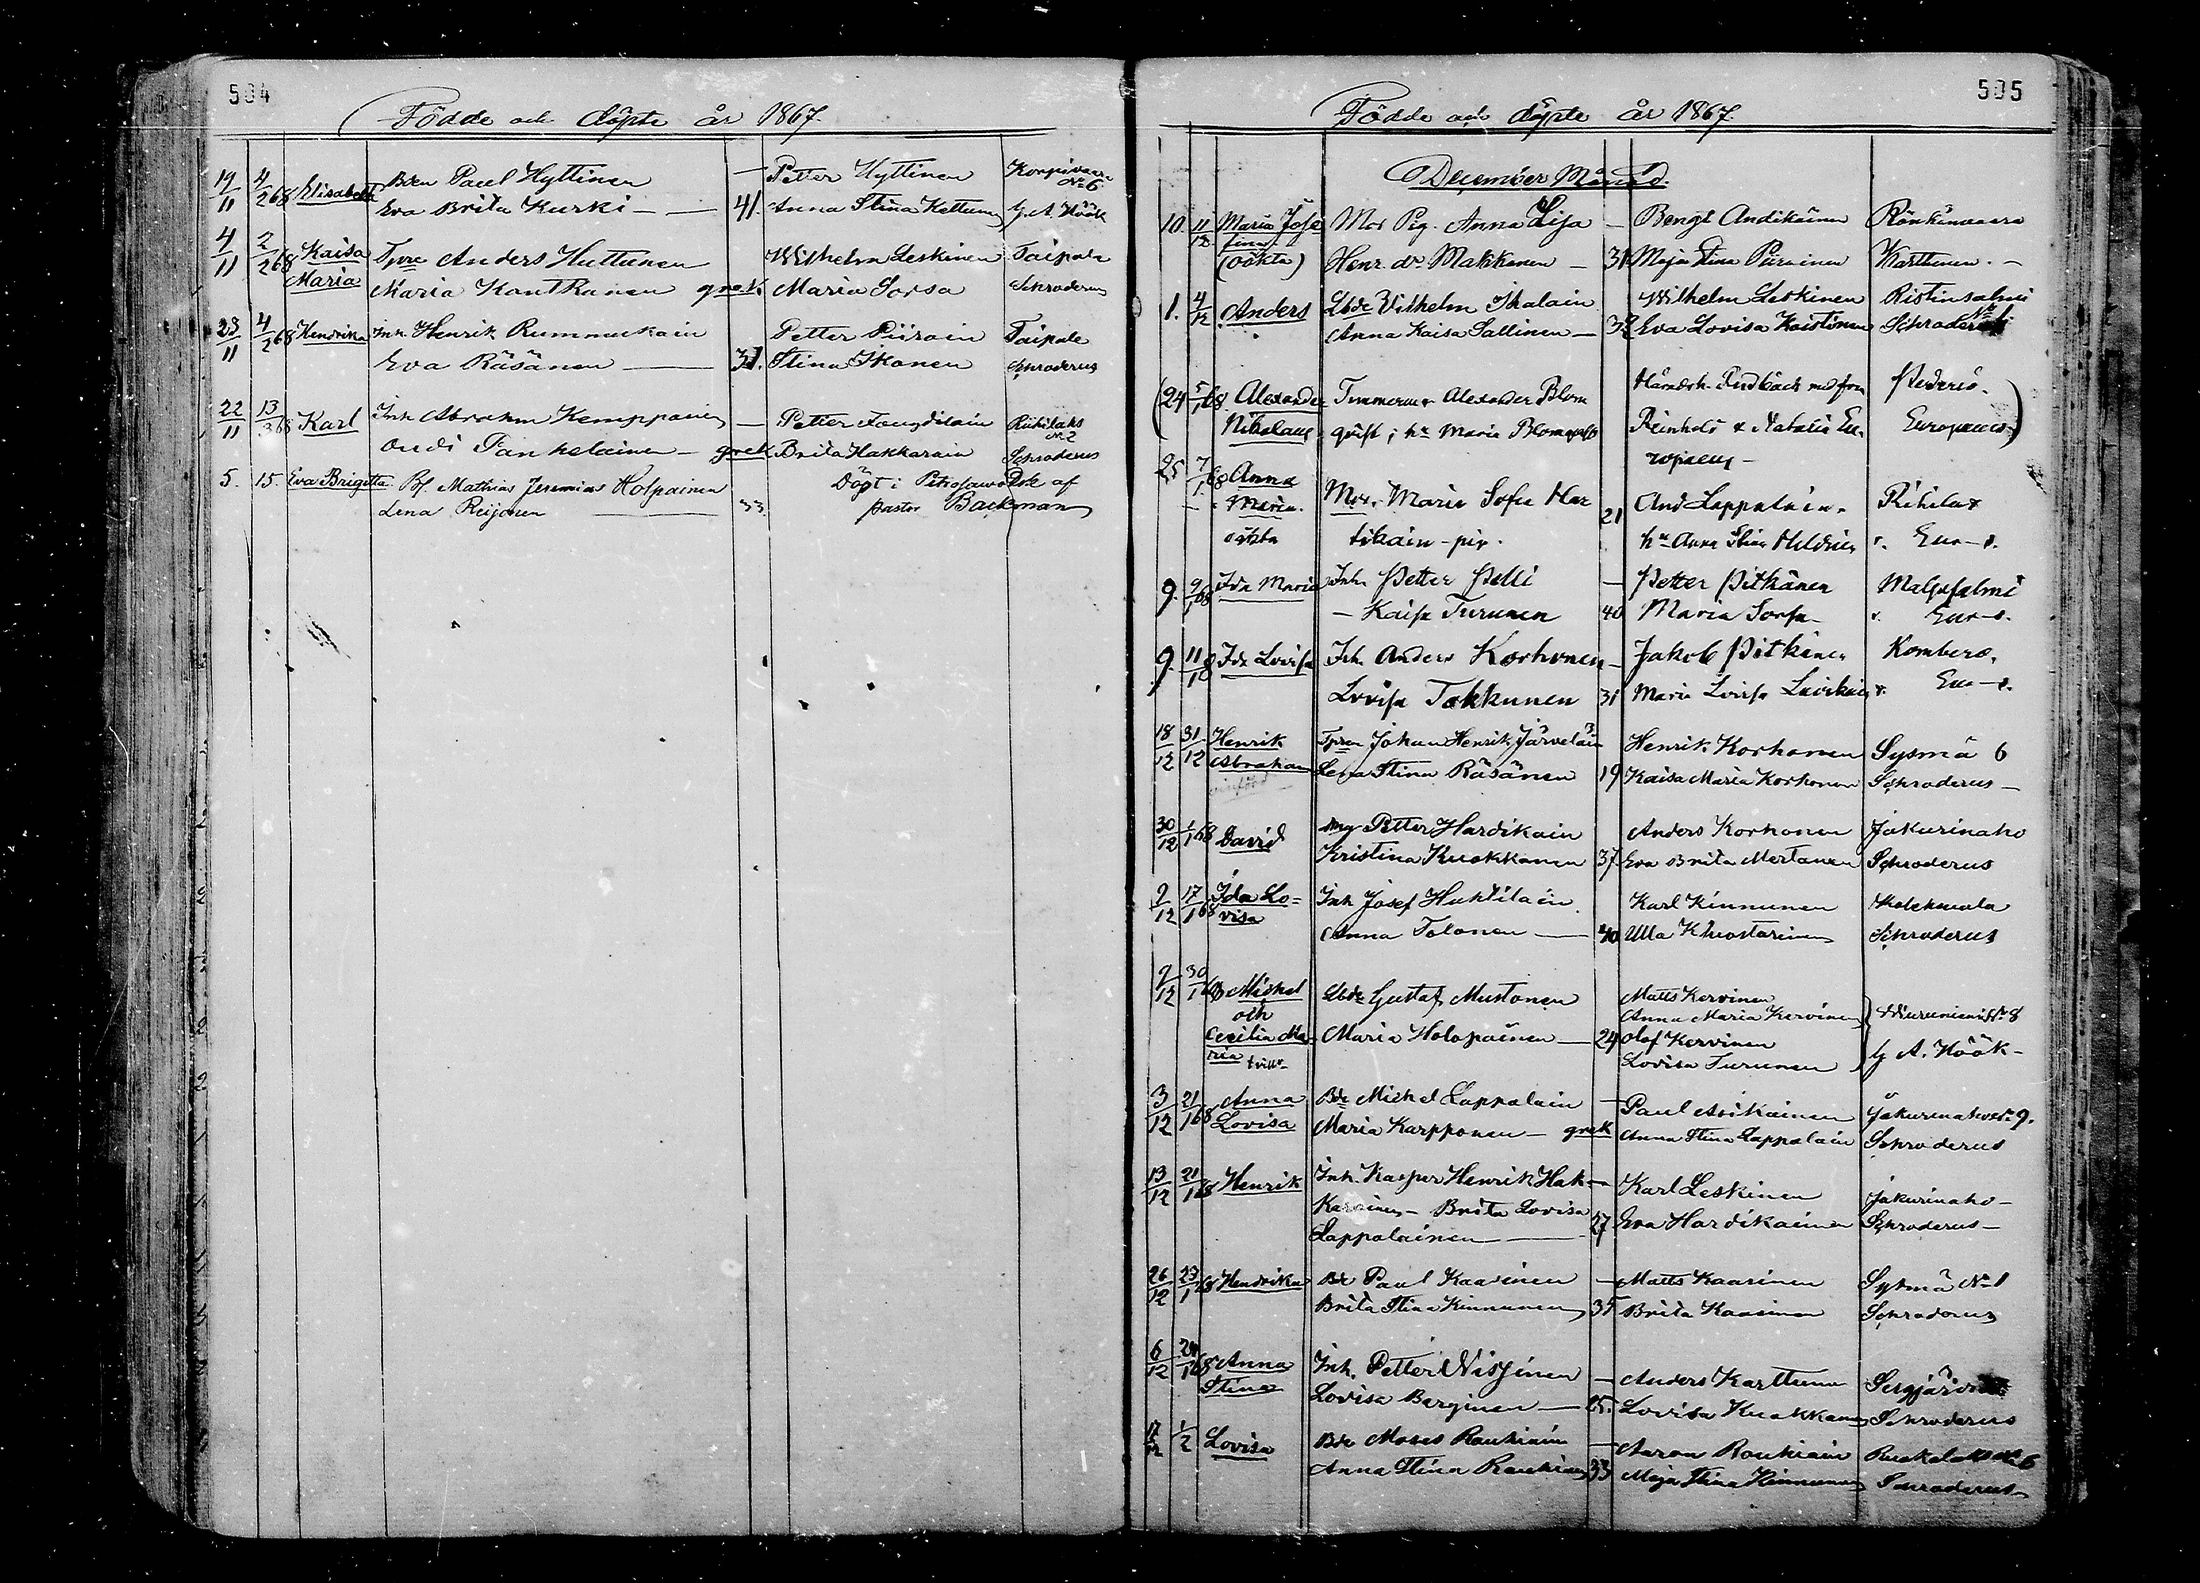 504
Födde och döpte år 1867.
19/11 4/2 68 Elisabeth Bden Paul Hyttinen — Petter Hyttinen Korpivaara No 6
Eva Brita Kurki — 41. Anna Stina Kettunen G. A. Höök
4/11 2/2 68 Kaisa Tpre Anders Huttunen Wilhelm Leskinen Taipale
Maria Maria Kantkanen grek. Maria Sorsa Schroderus
23/11 4/2 68 Hendrika Inh Henrik Rummukain Petter Piirain Taipale
Eva Räsänen — 31. Stina Ikonen Schroderus
22/11 13/3 68 Karl Inh Abraham Kemppainen — Petter
— grek Brita Hakkarain Schroderus
5. 15. Eva Brigitta Bf. Mathias Jeremias Holpainen Döpt i af
Lena Reijonen — 33 pastor Backman
505
Födde och döpte år 1867.
December Månad.
10. 11/12 Maria Jose Mor Pig. Anna Lisa — Bengt Andikäinen Rönkönvaara
fina
(oäkta) Henr. dr Makkonen — 31 Maja Stina Karttunen. —
1. 4/12 Anders Lbde Vilhelm Ikalain Wilhelm Leskinen Ristinsalmi
Anna Kaisa Sallinen — 32 Eva Lovisa Schroderus
(24 5/1 68. Alexander Timmerm Alexander Blom
Nikolaus qvist; hu Maria Blomqvist Reinhold & Natalia Eu- Europaeus)
ropaeus —
25 7/1 68 Anna
Maria. Mor. Maria Sofia Har 21 And Lappalain. Rihilax
oäkta tikain — pig. hu Anna Stina Eur—s.
9. 9/1 68 Ida Maria Inh. Petter Pelli — Petter Pitkänen Malgesalmi
— Kaisa Turunen 40 Maria Sorsa — Eur—s.
9. 11/1 8 Ida Lovisa Inh. Anders Korhonen — Jakob Pitkänen Kombero.
Lovisa Tokkunen 31 Maria Lovisa Eur—s.
18/12 31/12 Henrik Tpren Johan Henrik Järveläin Henrik Korhonen Sysmä 6
Abraham Lena Stina Räsänen 19 Kaisa Maria Korhonen Schroderus —
30/12 1/1 68 David Petter Hardikain Anders Korhonen Jakurinaho
Kristina Kuokkanen 37. Eva Brita Mertanen Schroderus
9/12 17/1 68 Ida Lo= Inh Josef Huhtilain Karl Kinnunen
visa Anna Tolonen — 40 Ulla Schroderus
9/12 30/1 68 Michel Lbde Gustaf Mustonen Matts Kervinen
och Anna Maria Kervinen No 8
Cecilia Ma Maria Holopainen — 24 Olof Kervinen
ria tvill. Lovisa Turunen G A. Höök —
3/12 21/1 68 Anna Bde Michel Lappalain — Paul Asikainen Jakurinaho No 9.
Lovisa Maria Karpponen — grek Anna Stina Lappalain Schroderus
13/12 21/1 68 Henrik Inh. Kasper Henrik Hak — Karl Leskinen Jakurinaho —
karainen — Brita Lovisa 27 Eva Hardikainen Schroderus —
Lappalainen —
26/12 23/1 68 Hendrika Bde Paul Kaarinen — Matts Kaarinen Sysmä No 1
Brita Stina Kinnunen 35 Brita Kaarinen Schroderus
6/12 24/1 68 Anna Inh. Petter Nissinen — Anders Karttunen
Stina Lovisa Berginen — 25. Lovisa Kuokkanen Schroderus
17/12 1/2 Lovisa Bde Moses Raukiain — Aaron Raukiain No 6
Anna Stina Raukiain 33 Maja Stina Kinnunen Schroderus —